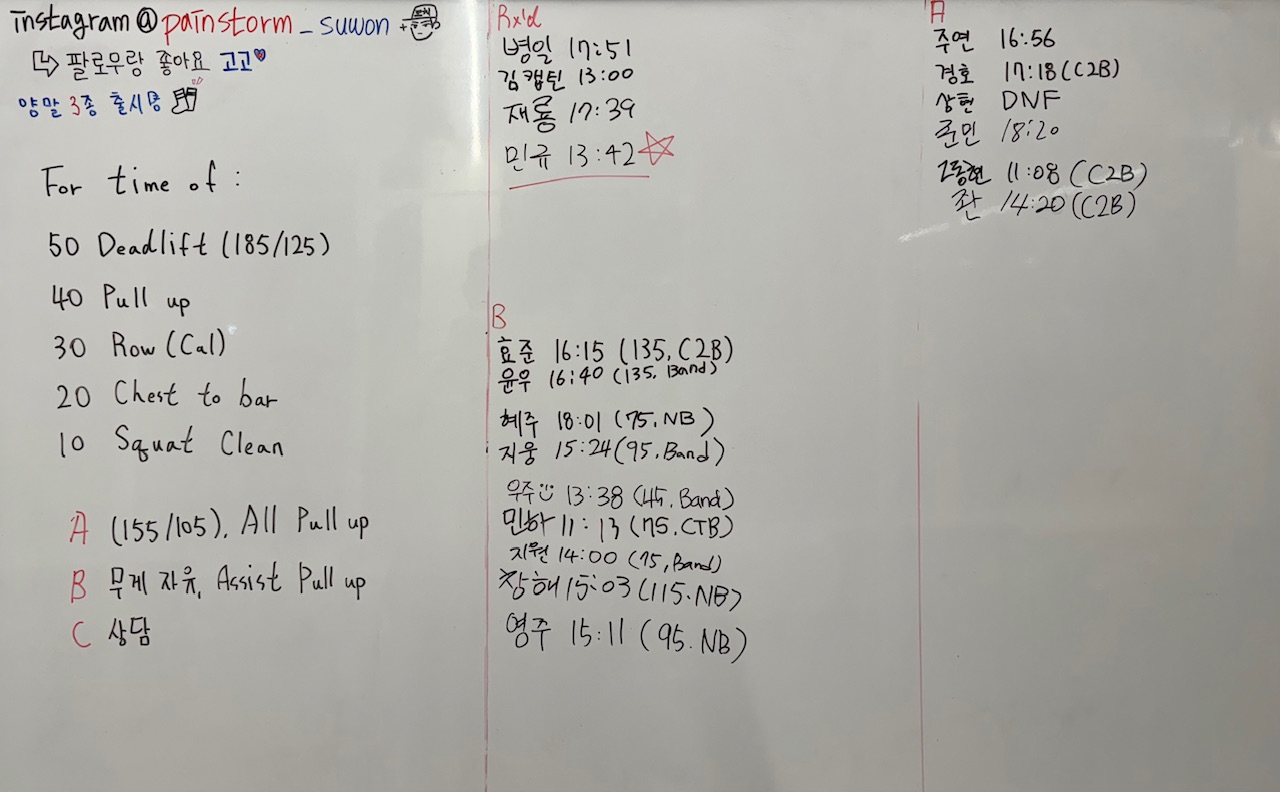 instagram@painstorm_suwon
팔로우랑 좋아요 고고
양말 3종 출시중
For time of :
50 Deadlift (185/125)
40 Pull up
30 Row (Cal)
20 Chest to bar
10 Squat Clean
A (155/105). All Pull up
B 무게 자유, Assist Pull up
C 상담
Rx'd
병일 17:51
김캡틴 13:00
재룡 17:39
민규 13:42
B
효준 16:15 (135, C2B)
윤우 16:40 (135, Band)
혜주 18:01 (75, NB)
지웅 15:24 (95, Band)
우주 13:38 (45, Band)
민하 11:13 (75, CTB)
지원 14:00 (75, Band)
창해 15:03 (115. NB)
영주 15:11 (95. NB)
A
주연 16:56
경호 17:18 (C2B)
상현 DNF
준민 18:20
11:08 (C2B)
좐 14:20 (C2B)